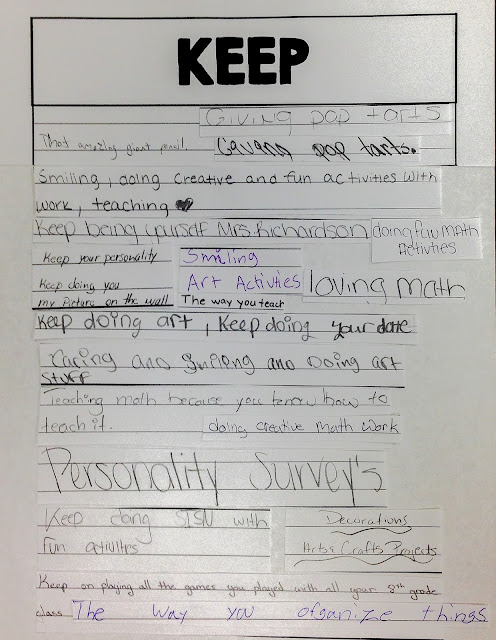 KEEP
Giving pop tarts
That amazing giant pencil. Gavann pop tarts.
Smiling, doing creative and fun activities with
work, teaching
Keep being yourself Mrs. Richardson doing fun math
Activties
Keep your personality Smiling
Keep doing you Art Activties loving math
my Picture on the wall The way you teach
Keep doing art, Keep doing your
caring and smileng and Doing art
stuff
Teaching math because you know how to
teach it. doing creative math work
Personality Survey's
Keep doing with Decorations
fun activities Arts & Crafts Projects
Keep on playing all the games you played with all your 8th grade
class The way you organize things